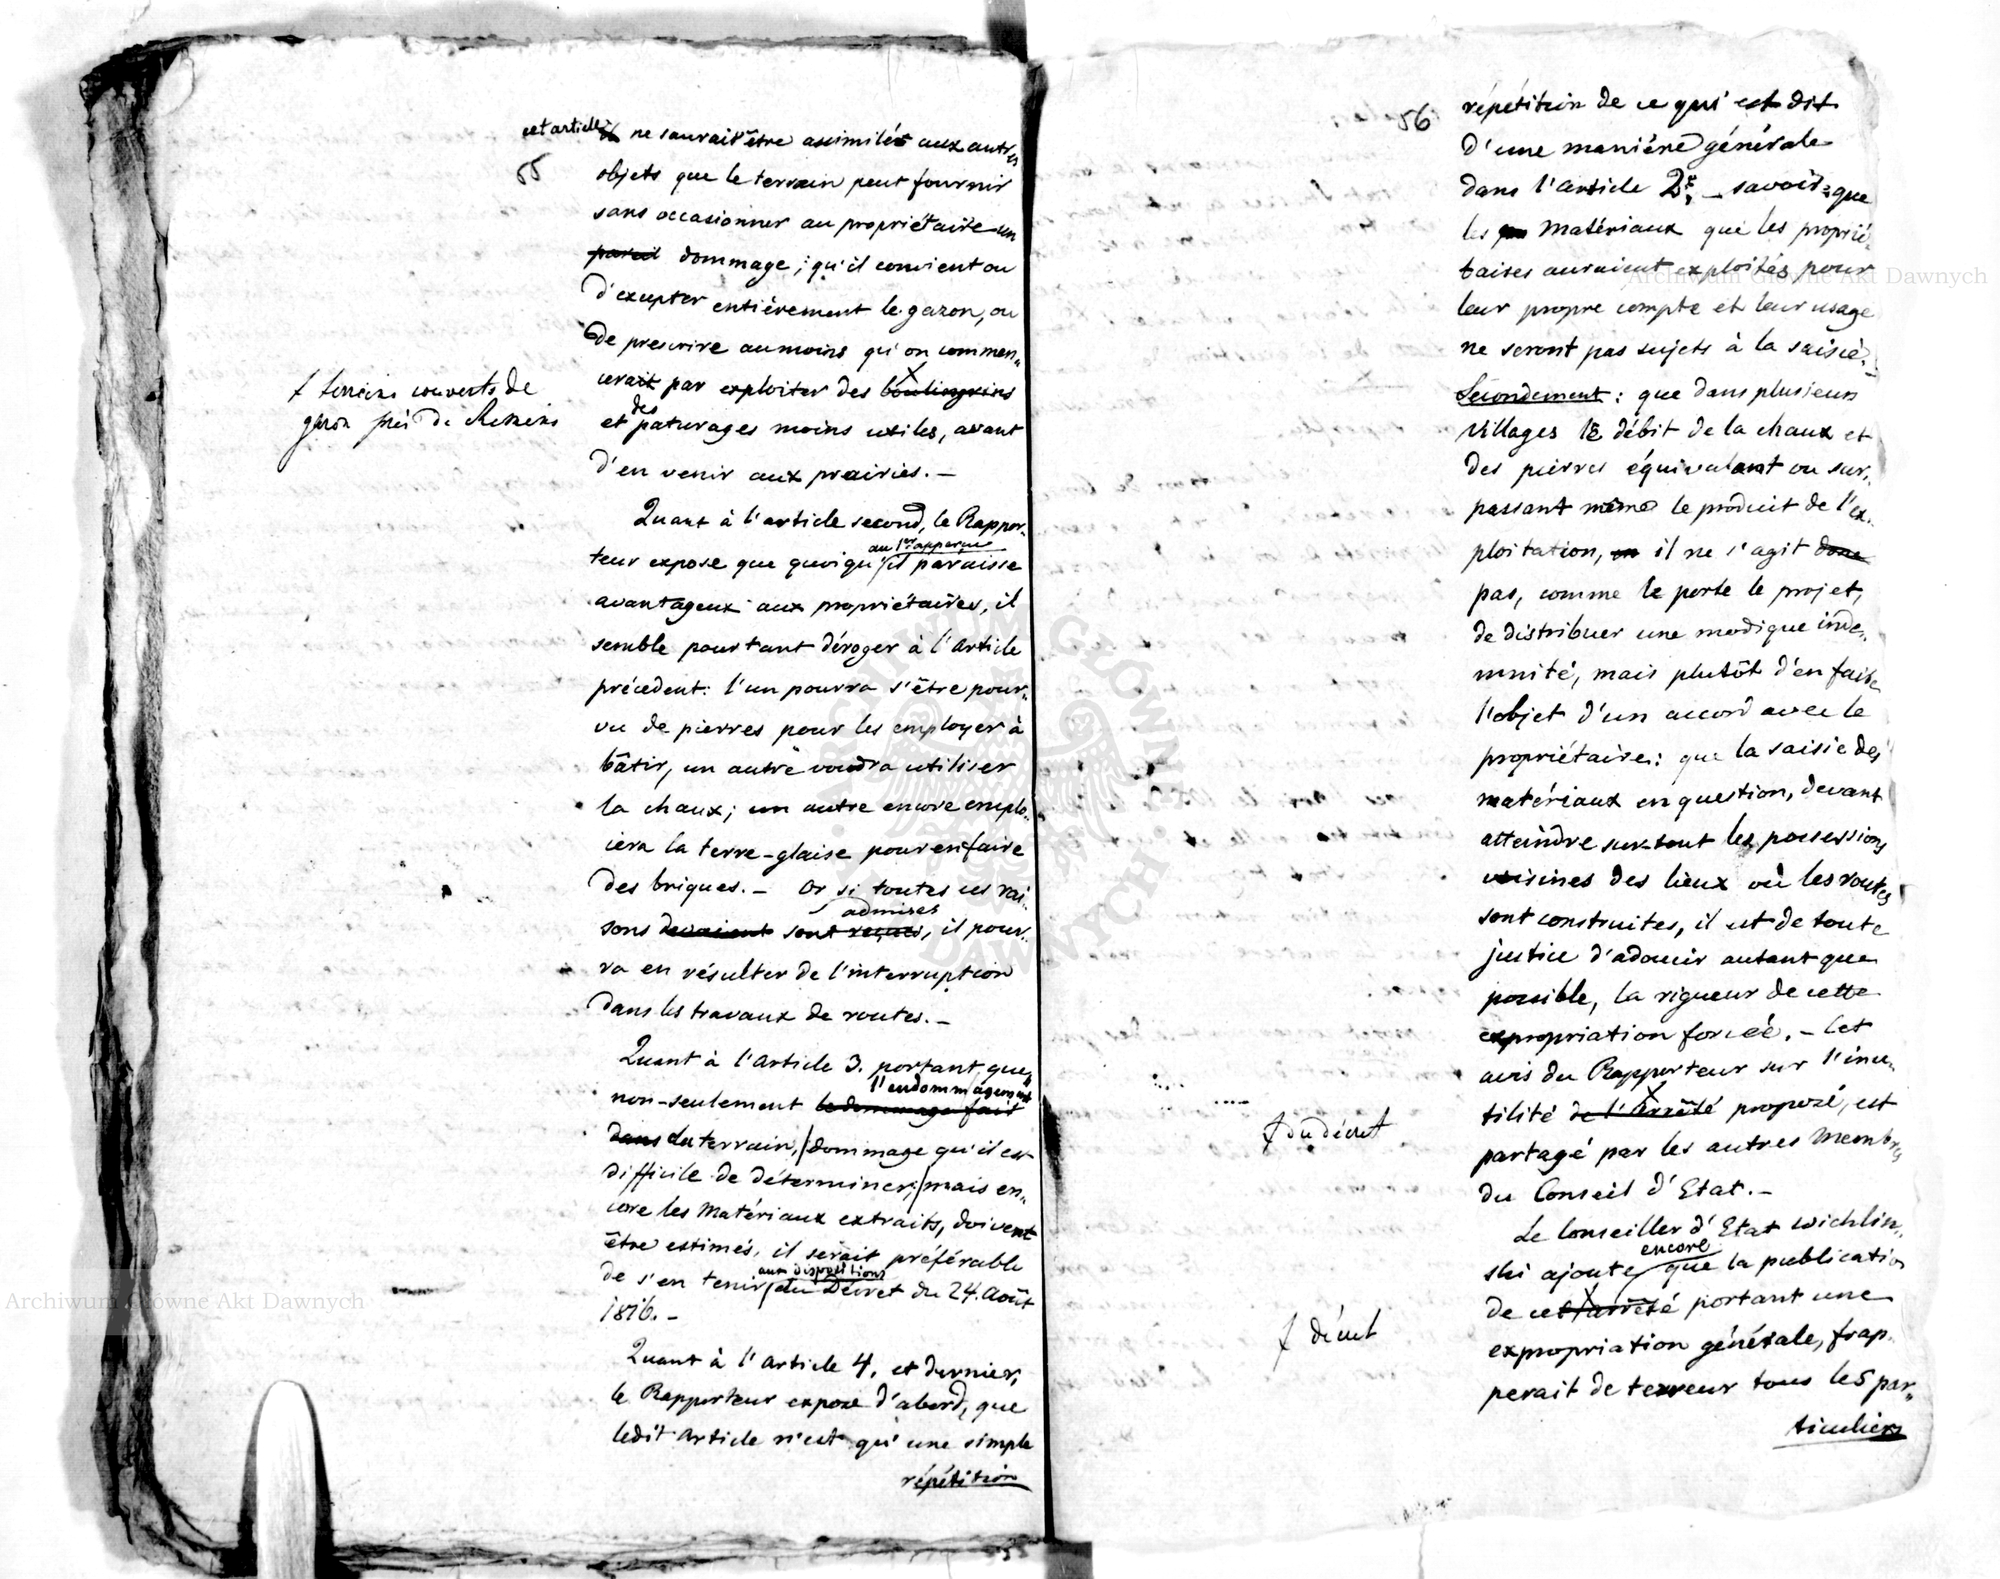 cet article ne saurait être assimilé aux autres
55
objets que le terrain peut fournir
sans occasionner au propriétaire un
pareil dommage; qu'il convient ou
d'excepter entièrement le gazon, ou
de prescrire au moins qu'on commen„
cerait par exploiter des boulingrins
ƒ terrains couverts de
gazon près de
et des paturages moins utiles, avant
d'en venir aux prairies. —
Quant à l'article second, le Rappor„
teur expose que quoiqu'il au 1er apperçu paraisse
avantageux aux propriétaires, il
semble pourtant déroger à l'Article
précédent: l'un pourra s'être pour„
vu de pierres pour les employer à
bâtir, un autre voudra utiliser
la chaux; un autre encore emplo„
iera la terre-glaise pour en faire
des briques. — Or si toutes ces rai„
sons devaient sont reçues admises, il pour„
ra en résulter de l'interruption
dans les travaux de routes. —
Quant à l'Article 3. portant que,
non-seulement le dommage fait l'endommagement
dans du terrain, dommage qu'il est
difficile de déterminer; mais en„
core les Matériaux extraits, doivent
être estimés, il serait préférable
de s'en tenir aux dispositions du Décret du 24. Août
1816. —
Quant à l'Article 4, et dernier,
le Rapporteur expose d'abord, que
ledit Article n'est qu'une simple
répétition
56
répétition de ce qui est dit
d'une manière générale
dans l'Article 2d, — savoir: que
les Matériaux que les proprié„
taires auraient exploités pour
leur propre compte et leur usage
ne seront pas sujets à la saisie. —
Secondement: que dans plusieurs
villages le débit de la chaux et
des pierres équivalant ou sur„
passant même le produit de l'ex„
ploitation, il ne s'agit donc
pas, comme le porte le projet,
de distribuer une modique inde„
mnité, mais plutôt d'en faire
l'objet d'un accord avec le
propriétaire: que la saisie des
matériaux en question, devant
atteindre sur-tout les possessions
voisines des lieux où les routes
sont construites, il est de toute
justice d'adoucir autant que
possible, la rigueur de cette
expropriation forcée. — Cet
avis du Rapporteur sur l'inu„
tilité de l'Arrêté proposé, est
ƒ du décret
partagé par les autres Membres
du Conseil d'Etat. —
Le Conseiller d'Etat Wichlin„
ski ajoute encore que la publication
de cet arrêté portant une
ƒ décret
expropriation générale, frap„
perait de terreur tous les par„
ticuliers